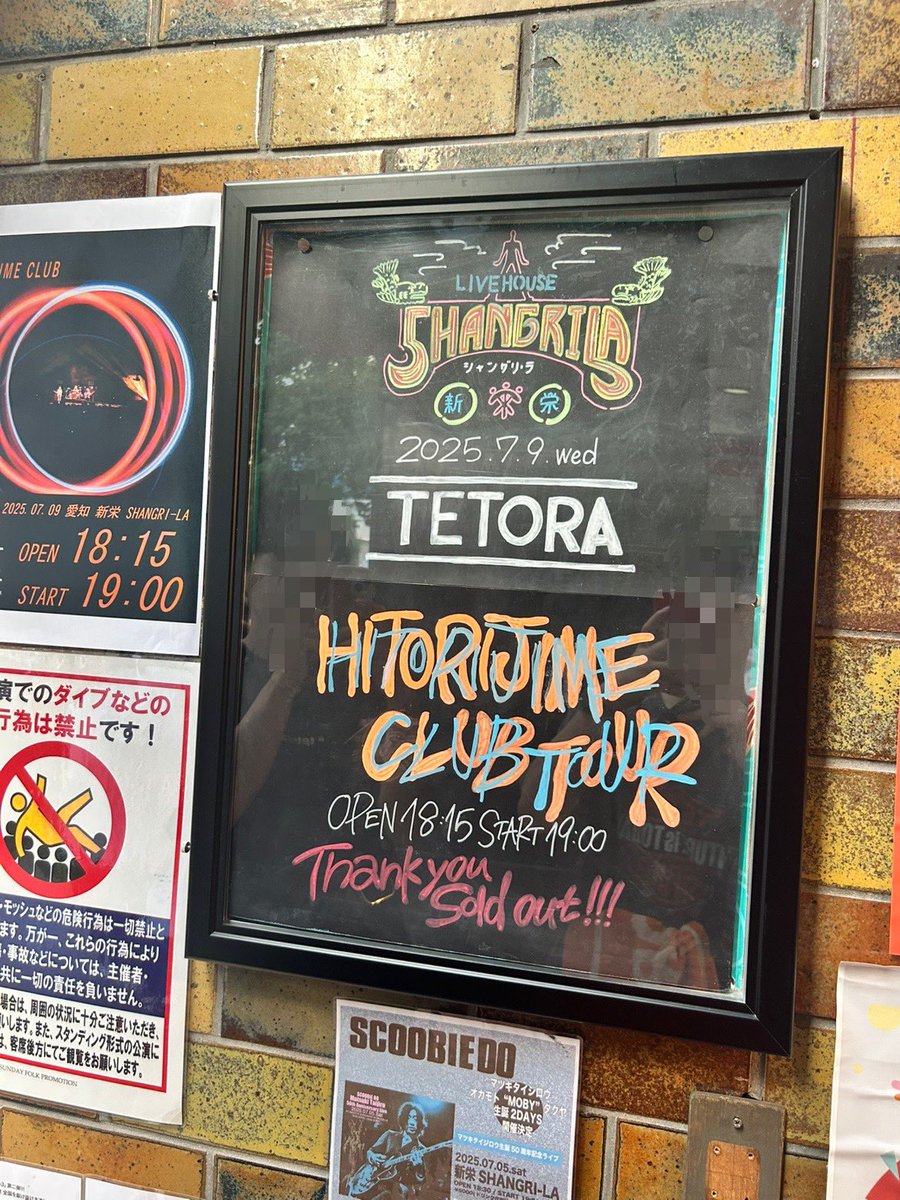 LIVEHOUSE
SHANGRILA
シャングリ・ラ
新 栄
2025.7.9.wed
TETORA
HITORIJIME
CLUB TOUR
OPEN 18:15 START 19:00
Thank you
Sold out!!!
IME CLUB
2025.07.09 愛知 新栄 SHANGRI-LA
OPEN 18:15
START 19:00
演でのダイブなどの
行為は禁止です!
・モッシュなどの危険行為は一切禁止と
ます。万が一、これらの行為により
・事故などについては、主催者・
共に一切の責任を負いません。
場合は、周囲の状況に十分ご注意いただき、
願いします。また、スタンディング形式の公演に
は、客席後方にてご観覧をお願いします。
SUNDAY FOLK PROMOTION
SCOOBIE DO
マツキタイジロウ
オカモト"MOBY"タクヤ
生誕 2DAYS
開催決定
マツキタイジロウ生誕50周年記念ライブ
2025.07.05.sat
新栄 SHANGRI-LA
OPEN 18:30 / START